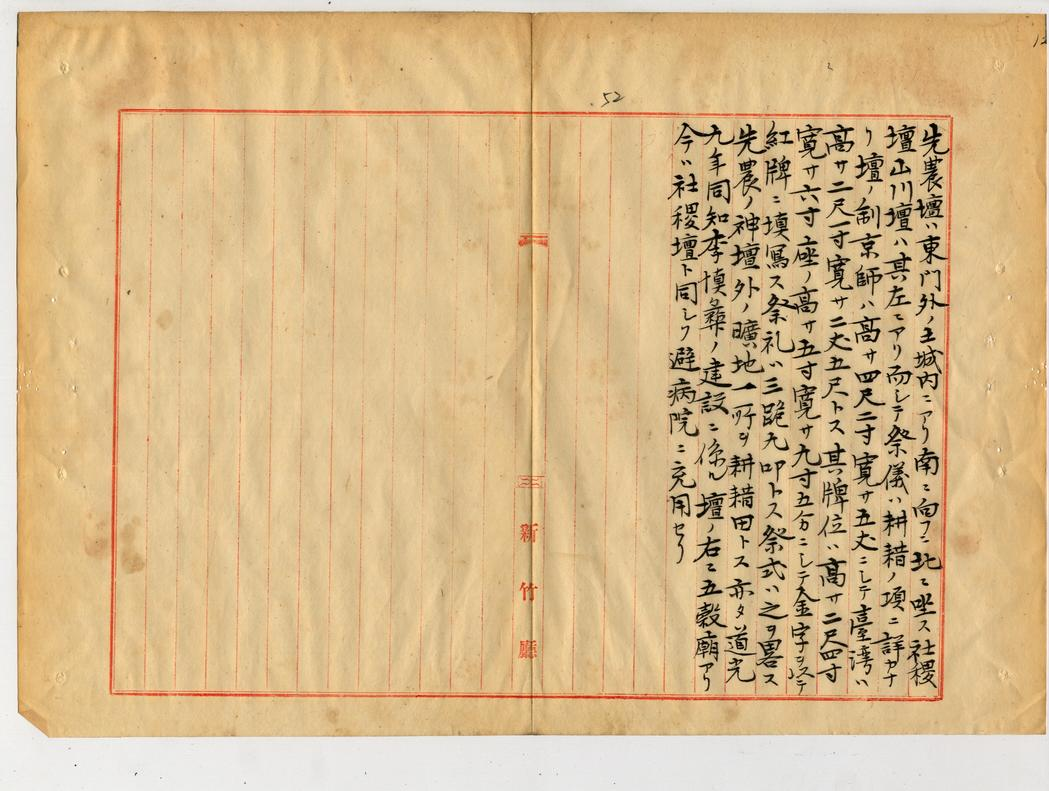 52
先農壇ハ東門外ノ土城内ニアリ南ニ向フニ北ニ坐ス社稷
壇山川壇ハ其左ニアリ而シテ祭儀ハ耕耤ノ項ニ詳カナ
リ壇ノ制京師ハ高サ四尺二寸寛サ五丈ニシテ臺湾ハ
高サ二尺一寸寛サ二丈五尺トス其牌位ハ高サ二尺四寸
寛サ六寸座ノ高サ五寸寛サ九寸五分ニシテ金字ヲ以テ
紅牌ニ填寫ス祭礼ハ三跪九叩トス祭式ハ之ヲ畧ス
先農ノ神壇外ノ曠地一所ヲ耕耤田トス亦タ道光
九年同知李慎彝ノ建設ニ係ル壇ノ右ニ五穀廟アリ
今ハ社稷壇ト同シク避病院ニ充用セリ
新竹廳